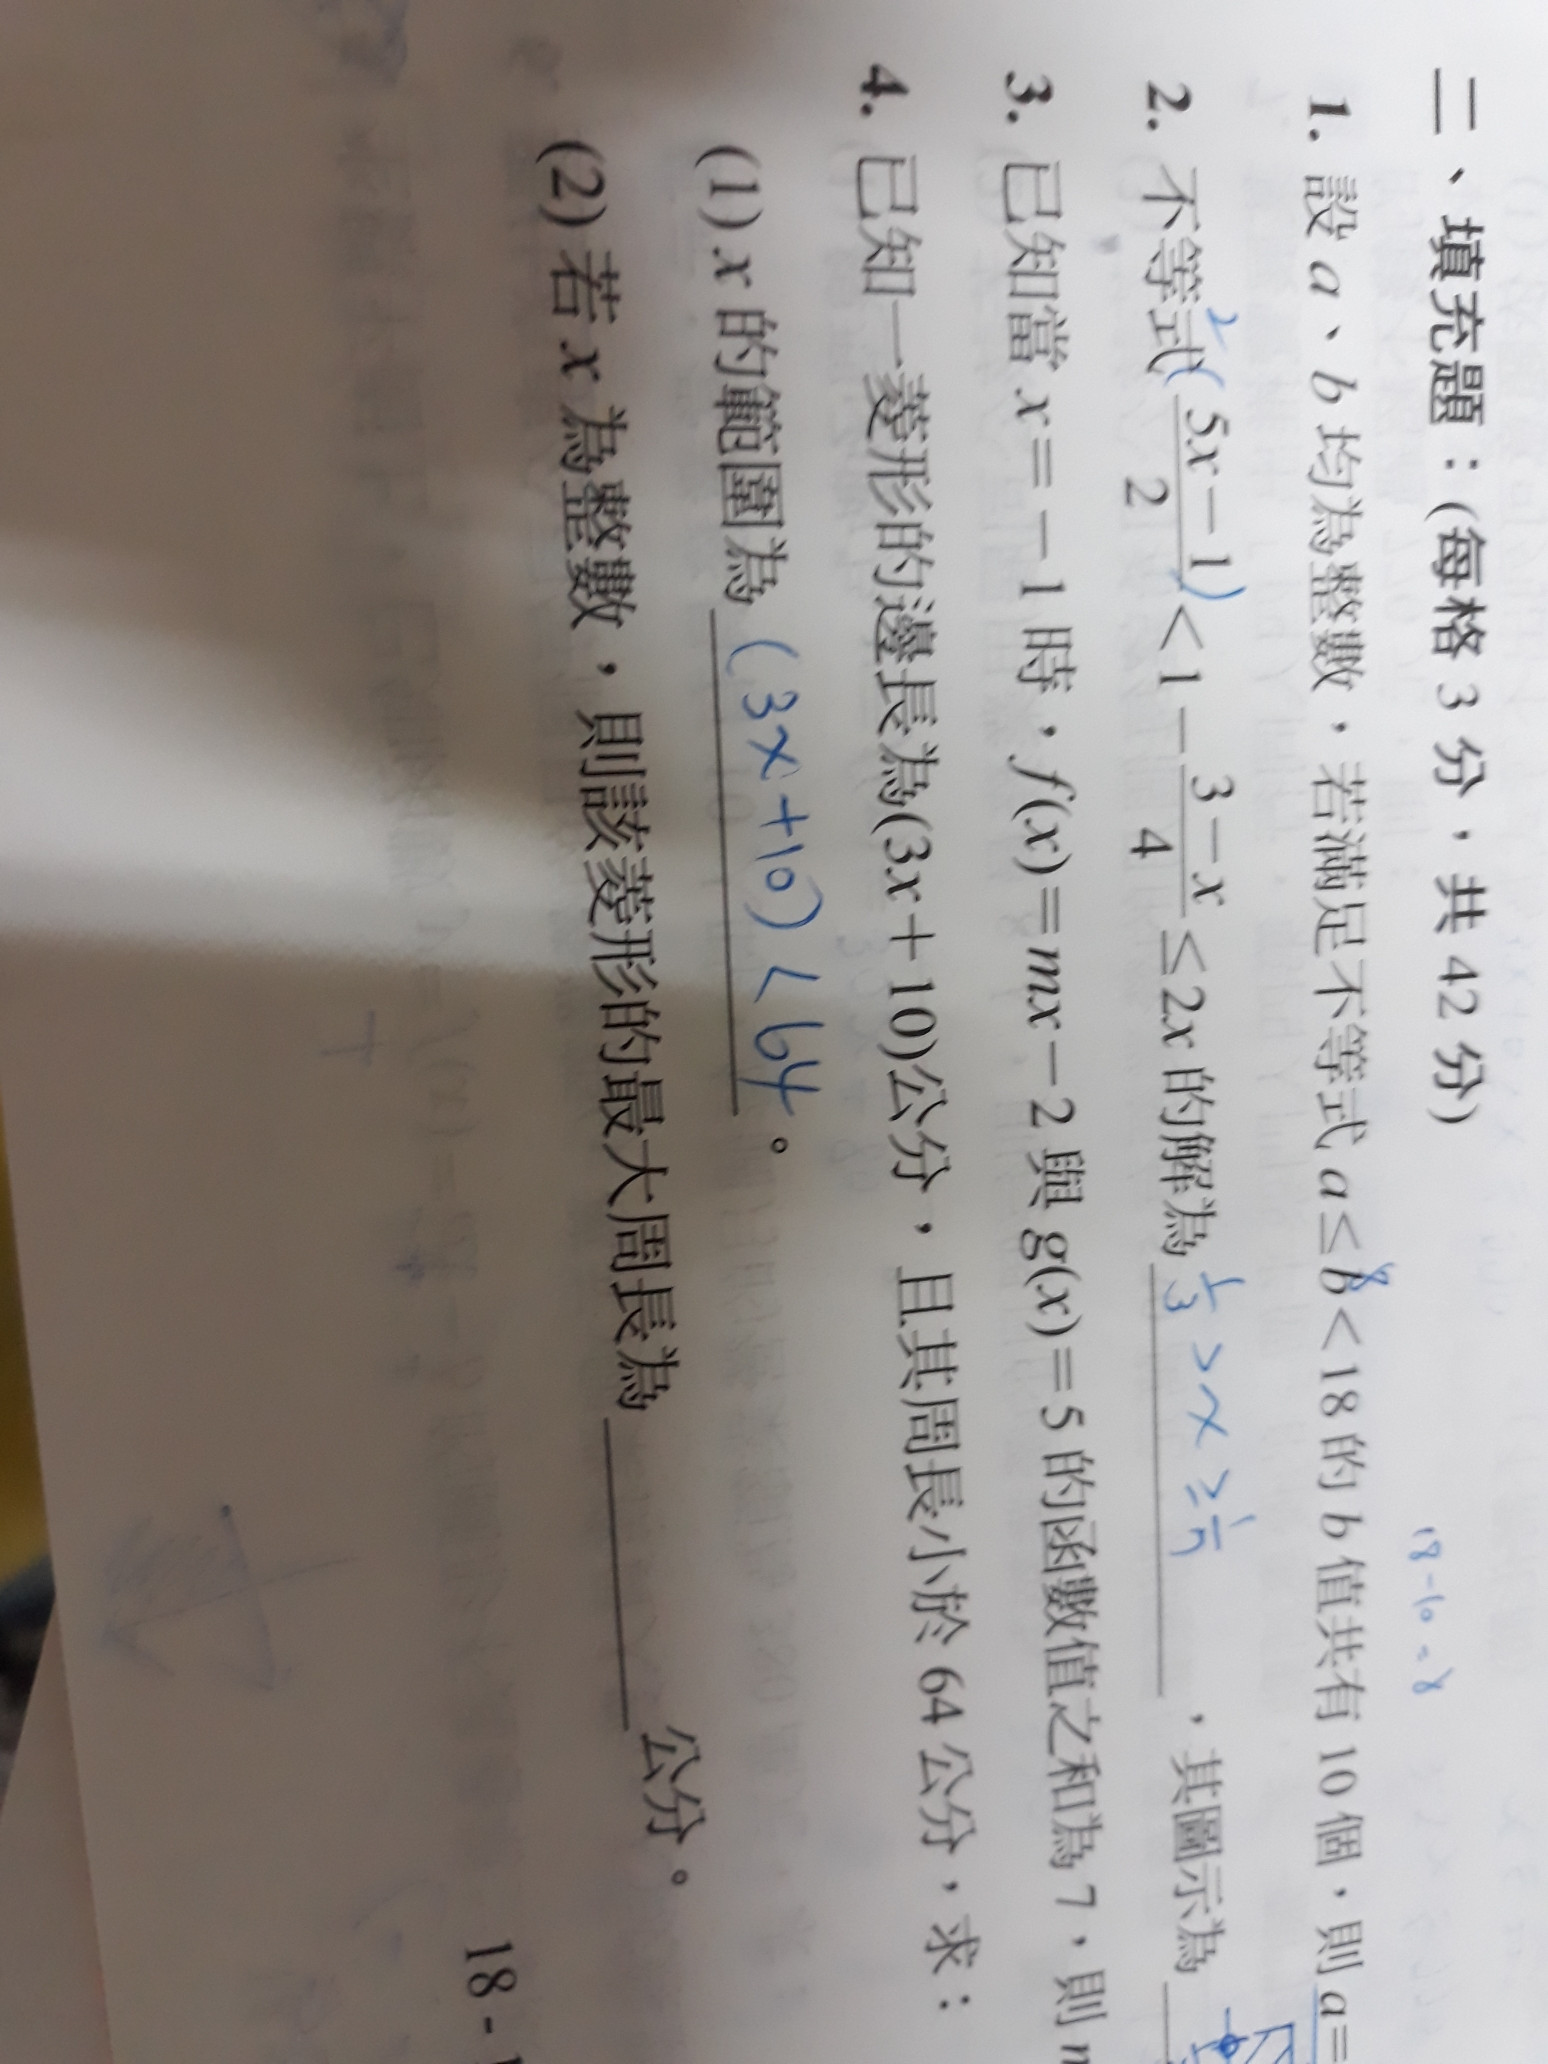 二、填充題：(每格 3 分，共 42 分)
18-10=8
1. 設 a、b 均為整數，若滿足不等式 a≤b<18 的 b 值共有 10 個，則 a=
8
2. 不等式 2((5x-1)/2)<1-(3-x)/4≤2x 的解為 1/3 > x ≥ 1/7，其圖示為
3. 已知當 x=-1 時，f(x)=mx-2 與 g(x)=5 的函數值之和為 7，則
4. 已知一菱形的邊長為(3x+10)公分，且其周長小於 64 公分，求：
(1) x 的範圍為 (3x+10) < 64。
(2) 若 x 為整數，則該菱形的最大周長為 公分。
18 -